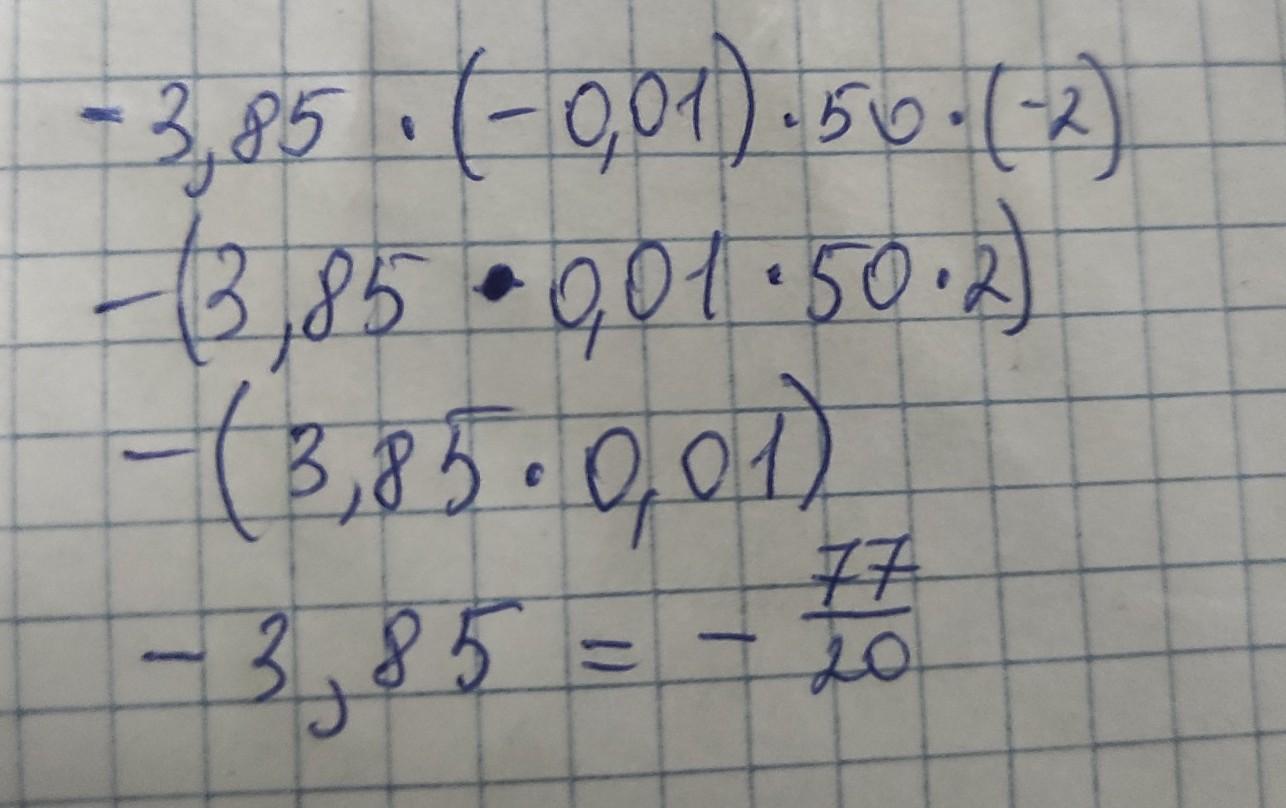 - 3,85 · (- 0,01) · 50 · (-2)
-(3,85 · 0,01 · 50 · 2)
-(3,85 · 0,01)
- 3,85 = - 77/20